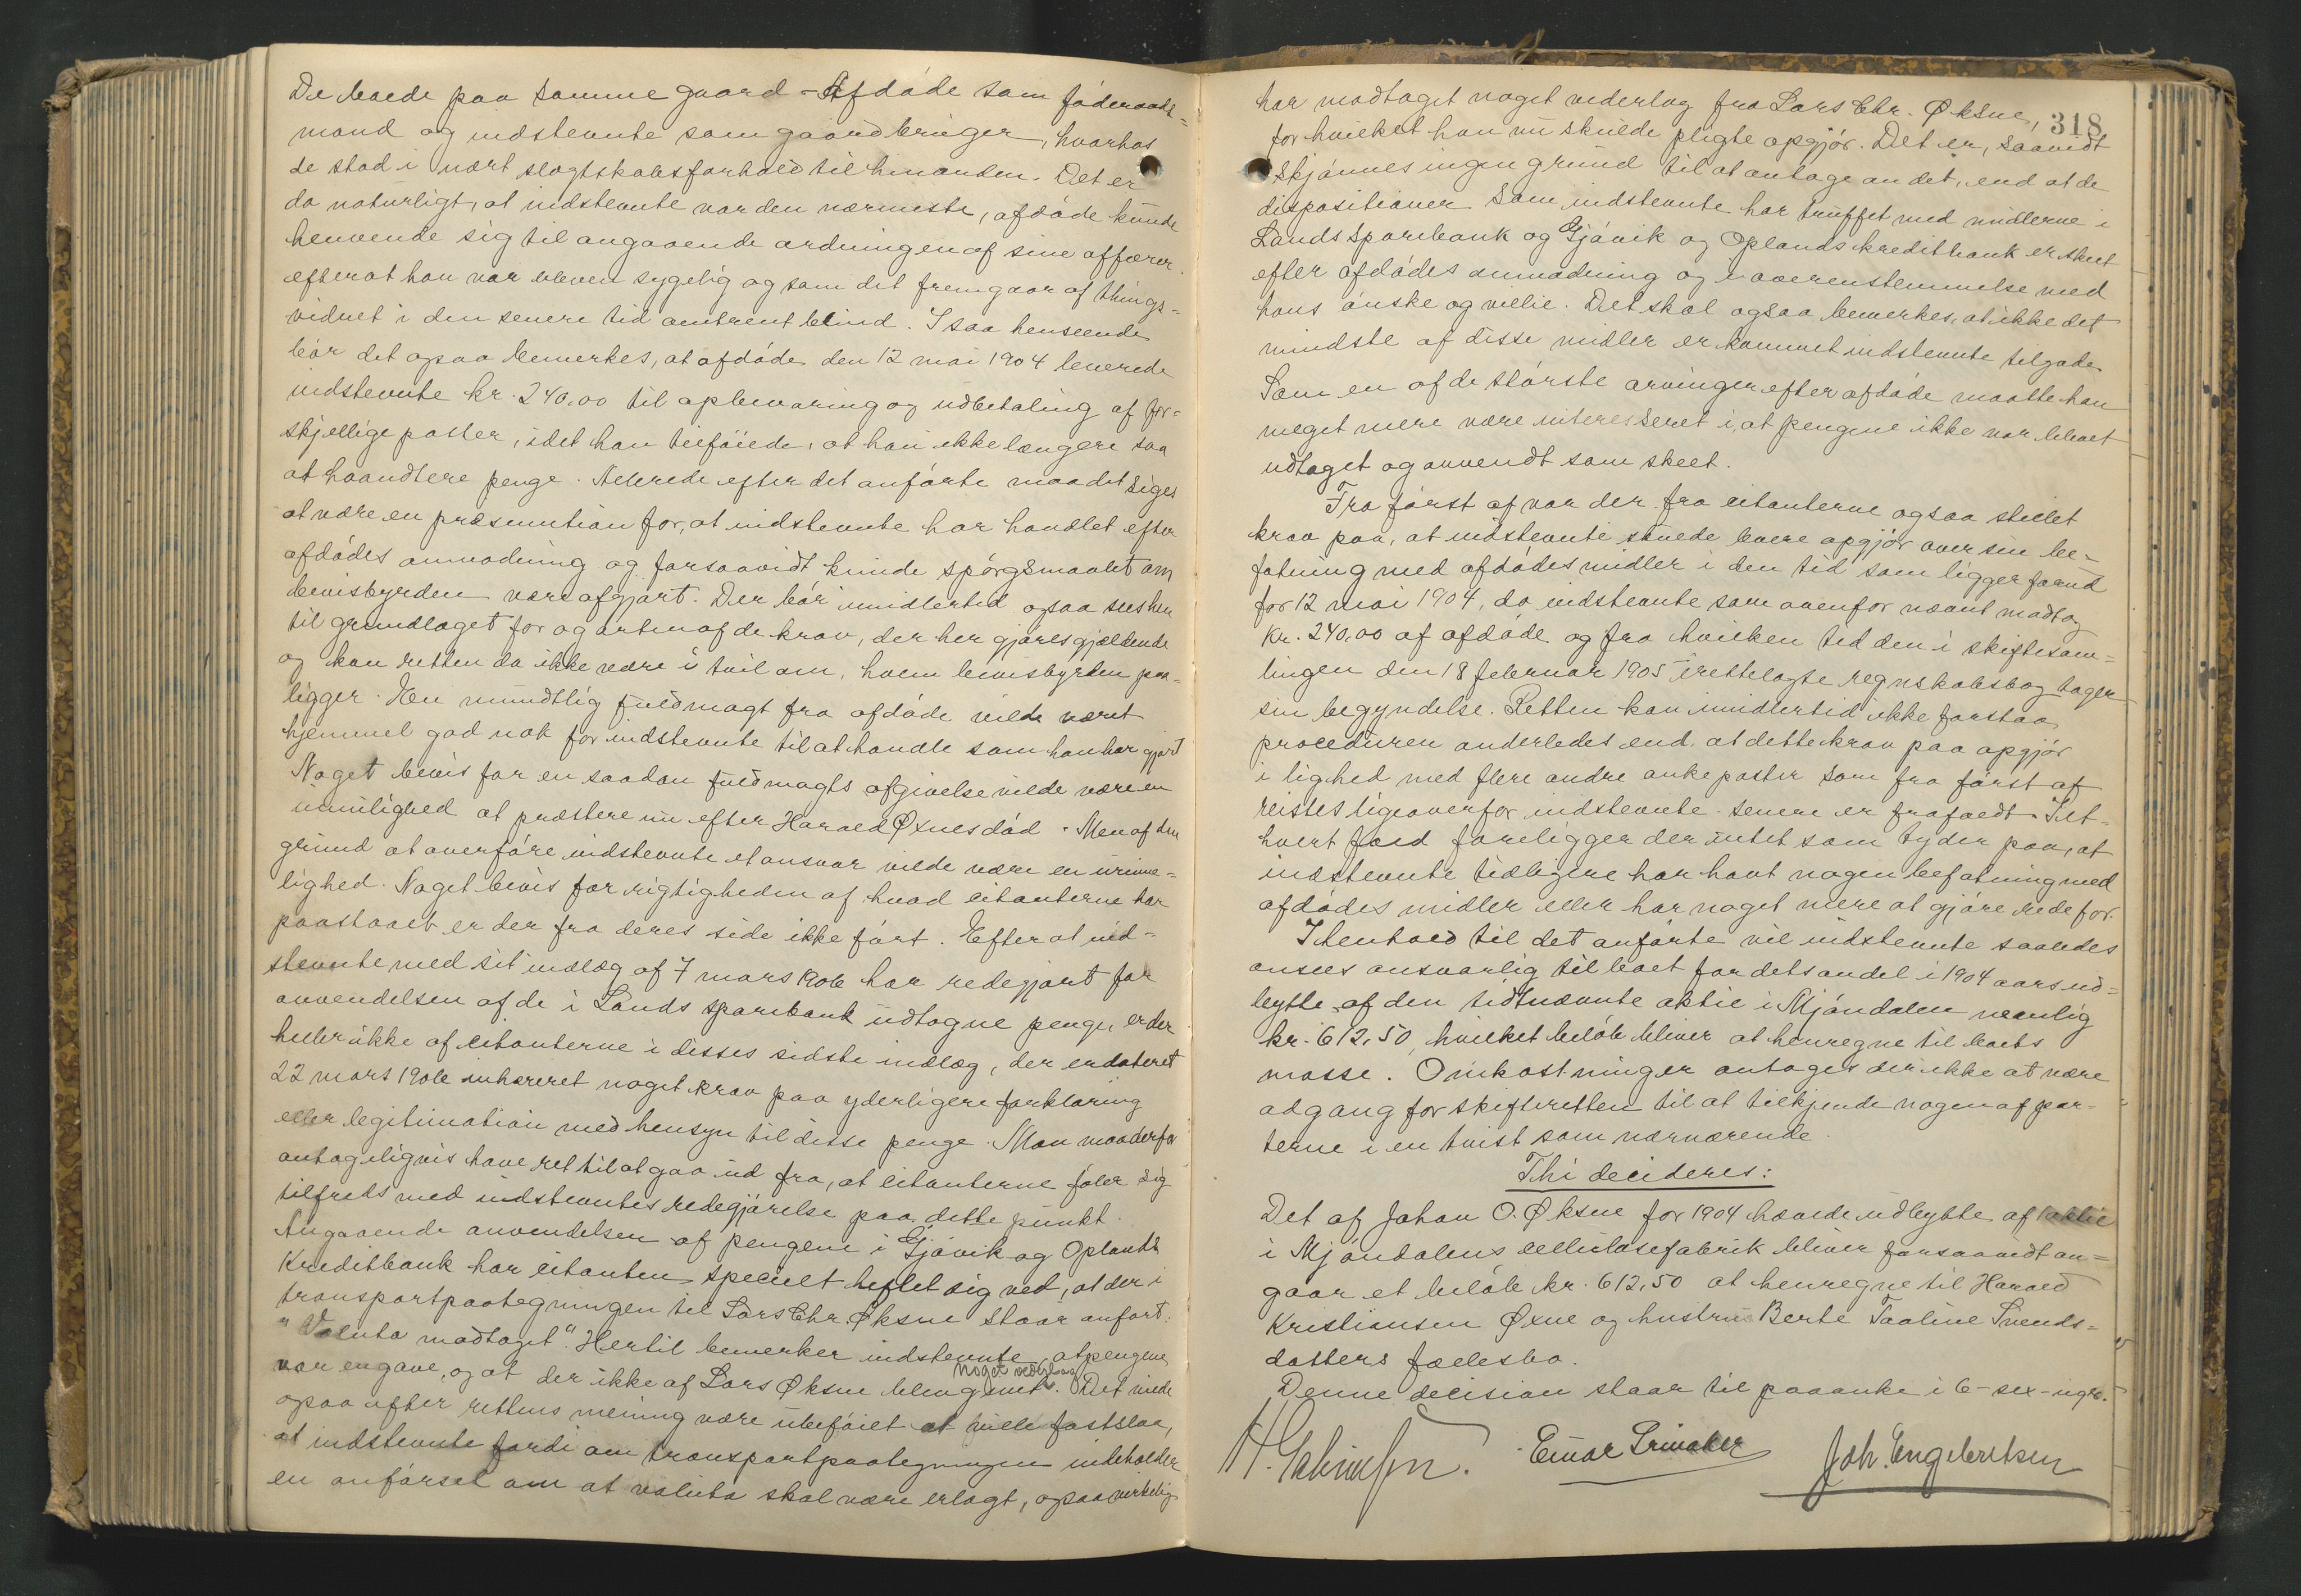 De boede paa samme gaard - Afdøde som føderaads-
mand og indstevnte som gaardbruger, hvorhos
de stod i nært slegtskabsforhold til hinanden. Det er
da naturligt, at indstevnte var den nærmeste, afdøde kunde
henvende sig til angaaende ordningen af sine affærer
efterat han var bleven sygelig og som det fremgaar af things-
vidnet i den senere tid omtrent blind. I saa henseende
bør det ogsaa bemerkes, at afdøde den 12 mai 1904 leverede
indstevnte kr. 240.00 til opbevaring og udbetaling af for-
skjellige poster, idet han tilføiede, at han ikke længere saa
at haandtere penge. Allerede efter det anførte maa det siges
at være en præsumtion for, at indstevnte har handlet efter
afdødes anmodning og forsaavidt kunde spørgsmaalet om
bevisbyrden være afgjort. Der bør imidlertid ogsaa sees hen
til grundlaget for og arten af de krav, der her gjøres gjældende
og kan retten da ikke være i tvil om, hvem bevisbyrden paa-
ligger. En mundtlig fuldmagt fra afdøde vilde været
hjemmel god nok for indstevnte til at handle som han har gjort
Noget bevis for en saadan fuldmagts afgivelse vilde være en
umulighed at præstere nu efter Harald Øxnes død. Men af den
grund at overføre indstevnte et ansvar vilde være en urime-
lighed. Noget bevis for rigtigheden af hvad citanterne har
paastaaet er der fra deres side ikke ført. Efter at ind-
stevnte med sit indlæg af 7 mars 1906 har redegjort for
anvendelsen af de i Lands sparebank udtagne penge, er der
heller ikke af citanterne i disses sidste indlæg, der er dateret
22 mars 1906 inhæreret noget krav paa yderligere forklaring
eller legitimation med hensyn til disse penge. Man maa derfor
antageligvis have ret til at gaa ud fra, at citanterne føler sig
tilfreds med indstevntes redegjørelse paa dette punkt.
Angaaende anvendelsen af pengene i Gjøvik og Oplands
Kreditbank har citanten specielt heftet sig ved, at der i
transportpaategningen til Lars Chr. Øksne staar anført:
"Valuta modtaget". Hertil bemerker indstevnte, at pengene
noget vederlag
var en gave, og at der ikke af Lars Øksne blev givet. Det vilde
ogsaa efter rettens mening være ubeføiet at ville fastslaa,
at indstevnte fordi om transportpaategningen indeholder
en anførsel om at valuta skal være erlagt, ogsaa virkelig
318
har modtaget noget vederlag fra Lars Chr. Øksne,
for hvilket han nu skulde pligte opgjør. Det er, saavidt
skjønnes ingen grund til at antage andet, end at de
dispositioner som indstevnte har truffet med midlerne i
Lands sparebank og Gjøvik og Oplands kreditbank er skeet
efter afdødes anmodning og i overensstemmelse med
hans ønske og villie. Det skal ogsaa bemerkes, at ikke det
mindste af disse midler er kommet indstevnte tilgode.
Som en af de største arvinger efter afdøde maatte han
meget mere være interesseret i, at pengene ikke var blevet
udtaget og anvendt som skeet.
Fra først af var der fra citanterne ogsaa stillet
krav paa, at indstevnte skulde levere opgjør over sin be-
fatning med afdødes midler i den tid som ligger forud
for 12 mai 1904, da indstevnte som ovenfor nævnt modtog
kr. 240.00 af afdøde og fra hvilken tid den i skiftesam-
lingen den 18 februar 1905 irettelagte regnskabsbog tager
sin begyndelse. Retten kan imidlertid ikke forstaa
proceduren anderledes end, at dette krav paa opgjør
i lighed med flere andre ankeposter som fra først af
reistes ligeoverfor indstevnte senere er frafaldt. I et-
hvert fald foreligger der intet som tyder paa, at
indstevnte tidligere har havt nogen befatning med
afdødes midler eller har noget mere at gjøre rede for.
I henhold til det anførte vil indstevnte saaledes
ansees ansvarlig til boet for dets andel i 1904 aars ud-
bytte af den tidtnævnte aktie i Mjøndalen nemlig
kr. 612,50, hvilket beløb bliver at henregne til boets
masse. Omkostninger antages der ikke at være
adgang for skifteretten til at tilkjende nogen af par-
terne i en tvist som nærværende.
Thi decideres:
Det af Johan O. Øksne for 1904 hævede udbytte af 1 aktie
i Mjøndalens cellulosefabrik bliver forsaavidt an-
gaar et beløb kr. 612,50 at henregne til Harald
Kristiansen Øxne og hustru Berte Taaline Svends-
datters fællesbo.
Denne decision staar til paaanke i 6 - sex - uger.
Einar Joh. Engebretsen